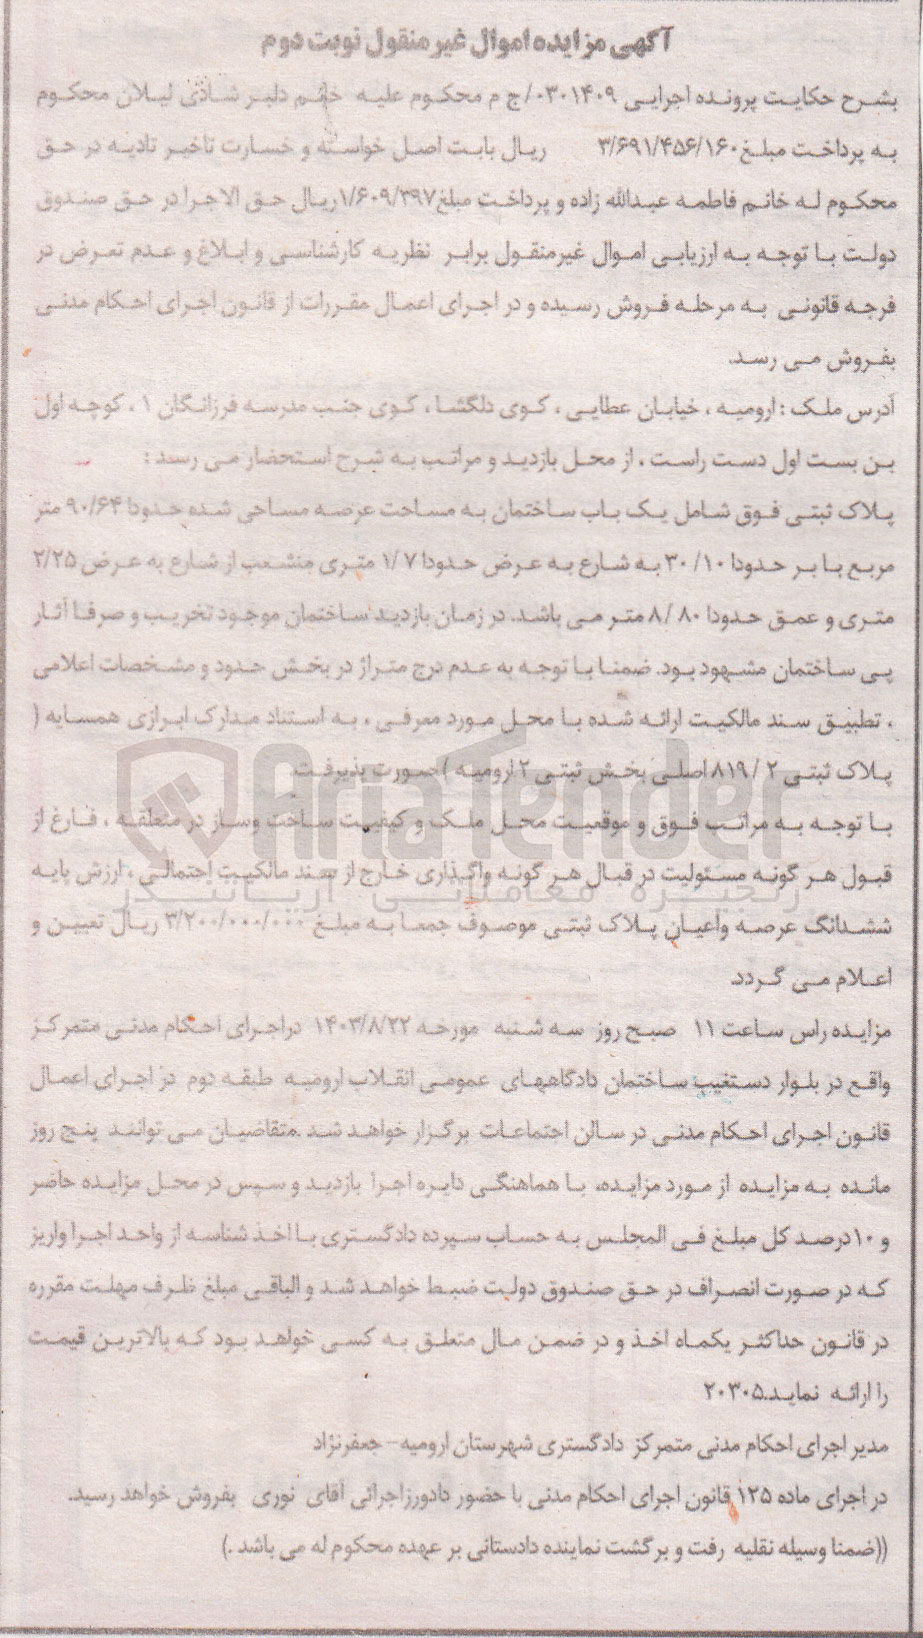 آگهی مزایده اموال غیر منقول نوبت دوم
بشرح حکایت پرونده اجرایی ۰۳۰۱۴۰۹/ج م محکوم علیه خانم دلبر شادی لیلان محکوم
به پرداخت مبلغ ۳/۶۹۱/۴۵۶/۱۶۰ ریال بابت اصل خواسته و خسارت تاخیر تادیه در حق
محکوم له خانم فاطمه عبدالله زاده و پرداخت مبلغ ۱/۶۰۹/۳۹۷ریال حق الاجرا در حق صندوق
دولت با توجه به ارزیابی اموال غیرمنقول برابر نظریه کارشناسی و ابلاغ و عدم تعرض در
فرجه قانونی به مرحله فروش رسیده و در اجرای اعمال مقررات از قانون اجرای احکام مدنی
بفروش می رسد.
آدرس ملک : ارومیه ، خیابان عطایی ، کوی دلگشا ، کوی جنب مدرسه فرزانگان ۱ ، کوچه اول
بن بست اول دست راست ، از محل بازدید و مراتب به شرح استحضار می رسد :
پلاک ثبتی فوق شامل یک باب ساختمان به مساحت عرصه مساحی شده حدودا ۹۰/۶۴ متر
مربع با بر حدودا ۳۰/۱۰ به شارع به عرض حدودا ۱/۷ متری منشعب از شارع به عرض ۲/۲۵
متری و عمق حدودا ۸/۸۰ متر می باشد. در زمان بازدید ساختمان موجود تخریب و صرفا آثار
پی ساختمان مشهود بود. ضمنا با توجه به عدم درج متراژ در بخش حدود و مشخصات اعلامی
، تطبیق سند مالکیت ارائه شده با محل مورد معرفی ، به استناد مدارک ابرازی همسایه (
پلاک ثبتی ۸۱۹/۲ اصلی بخش ثبتی ۲ ارومیه ) صورت پذیرفت.
AriaTender
با توجه به مراتب فوق و موقعیت محل ملک و کیفیت ساخت وساز در منطقه ، فارغ از
قبول هر گونه مسئولیت در قبال هر گونه واگذاری خارج از سند مالکیت احتمالی ، ارزش پایه
زنجیره معاملاتی آریاتندر
ششدانگ عرصه واعیان پلاک ثبتی موصوف جمعا به مبلغ ۳/۲۰۰/۰۰۰/۰۰۰ ریال تعیین و
اعلام می گردد.
مزایده راس ساعت ۱۱ صبح روز سه شنبه مورخه ۱۴۰۳/۸/۲۲ دراجرای احکام مدنی متمرکز
واقع در بلوار دستغیب ساختمان دادگاههای عمومی انقلاب ارومیه طبقه دوم در اجرای اعمال
قانون اجرای احکام مدنی در سالن اجتماعات برگزار خواهد شد .متقاضیان می توانند پنج روز
مانده به مزایده از مورد مزایده، با هماهنگی دایره اجرا بازدید و سپس در محل مزایده حاضر
و ۱۰درصد کل مبلغ فی المجلس به حساب سپرده دادگستری با اخذ شناسه از واحد اجرا واریز
که در صورت انصراف در حق صندوق دولت ضبط خواهد شد و الباقی مبلغ ظرف مهلت مقرره
در قانون حداکثر یکماه اخذ و در ضمن مال متعلق به کسی خواهد بود که بالاترین قیمت
را ارائه نماید.۲۰۳۰۵
مدیر اجرای احکام مدنی متمرکز دادگستری شهرستان ارومیه- جعفرنژاد
در اجرای ماده ۱۲۵ قانون اجرای احکام مدنی با حضور دادورزاجرائی آقای نوری بفروش خواهد رسید.
((ضمنا وسیله نقلیه رفت و برگشت نماینده دادستانی بر عهده محکوم له می باشد .)